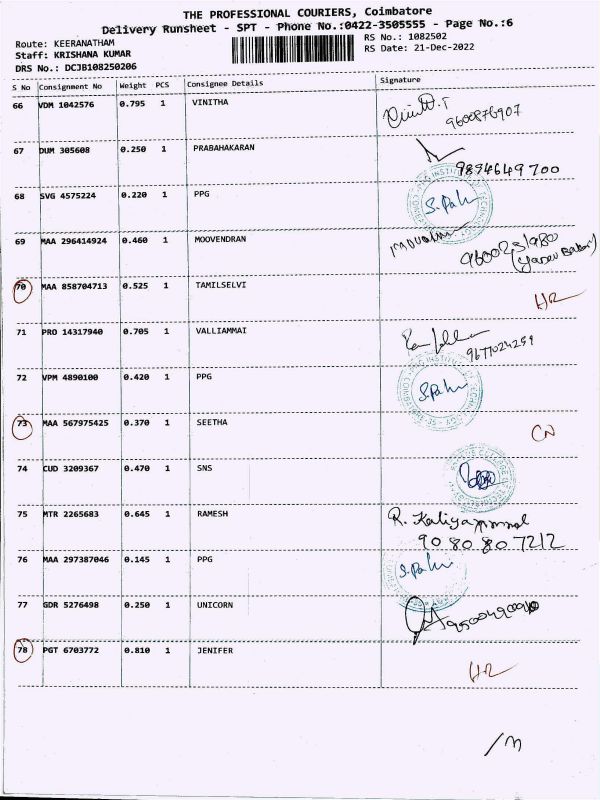 THE PROFESSIONAL COURIERS, Coimbatore
Delivery Runsheet - SPT - Phone No.:0422-3505555 - Page No.:6
Route: KEERANATHAM
Staff: KRISHANA KUMAR
DRS No.: DCJB108250206
RS No.: 1082502
RS Date: 21-Dec-2022
S No Consignment No Weight PCS Consignee Details Signature
66 VDM 1042576 0.795 1 VINITHA
9600876907
67 DUM 305608 0.250 1 PRABAHAKARAN
9894649700
68 SVG 4575224 0.220 1 PPG
69 MAA 296414924 0.460 1 MOOVENDRAN
70 MAA 858704713 0.525 1 TAMILSELVI
71 PRO 14317940 0.705 1 VALLIAMMAI
9677024259
72 VPM 4890100 0.420 1 PPG
73 MAA 567975425 0.370 1 SEETHA
CN
74 CUD 3209367 0.470 1 SNS
75 MTR 2265683 0.645 1 RAMESH
90 80 80 7212
76 MAA 297387046 0.145 1 PPG
77 GDR 5276498 0.250 1 UNICORN
78 PGT 6703772 0.810 1 JENIFER